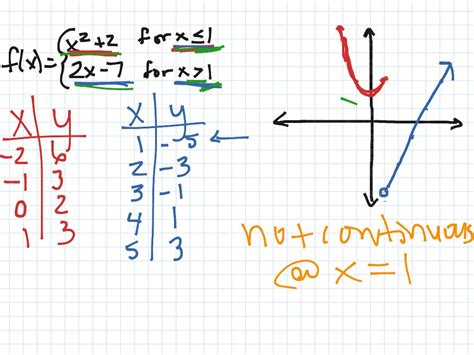 f(x) = { x²+2 for x ≤ 1
2x-7 for x > 1
x y
-2 6
-1 3
0 2
1 3
x y
1 -5 ←
2 -3
3 -1
4 1
5 3
not continuous
@ x = 1